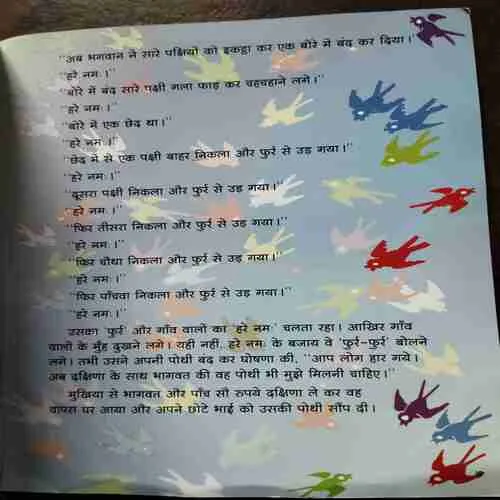 "अब भगवान ने सारे पक्षियों को इकट्ठा कर एक बोरे में बंद कर दिया।"
"हरे नमः।"
"बोरे में बंद सारे पक्षी गला फाड़ कर चहचहाने लगे।"
"हरे नमः।"
"बोरे में एक छेद था।"
"हरे नमः।"
"छेद में से एक पक्षी बाहर निकला और फुर्र से उड़ गया।"
"हरे नमः।"
"दूसरा पक्षी निकला और फुर्र से उड़ गया।"
"हरे नमः।"
"फिर तीसरा निकला और फुर्र से उड़ गया।"
"हरे नमः।"
"फिर चौथा निकला और फुर्र से उड़ गया।"
"हरे नमः।"
"फिर पाँचवा निकला और फुर्र से उड़ गया।"
"हरे नमः।"
उसका 'फुर्र' और गाँव वालों का 'हरे नमः' चलता रहा। आखिर गाँव
वालों के मुँह दुखने लगे। यही नहीं, हरे नमः के बजाय वे 'फुर्र-फुर्र' बोलने
लगे। तभी उसने अपनी पोथी बंद कर घोषणा की, "आप लोग हार गये।
अब दक्षिणा के साथ भागवत की वह पोथी भी मुझे मिलनी चाहिए।"
मुखिया से भागवत और पाँच सौ रुपये दक्षिणा ले कर वह
वापस घर आया और अपने छोटे भाई को उसकी पोथी सौंप दी।